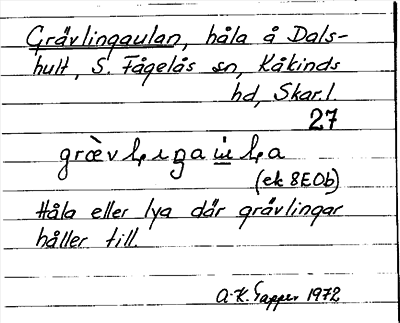 Grävlingaulan, håla å Dals-
hult, S. Fågelås sn, Kåkinds
hd, Skar.l.
27
(ek 8E0b)
Håla eller lya där grävlingar
håller till.
A.-K. 1972